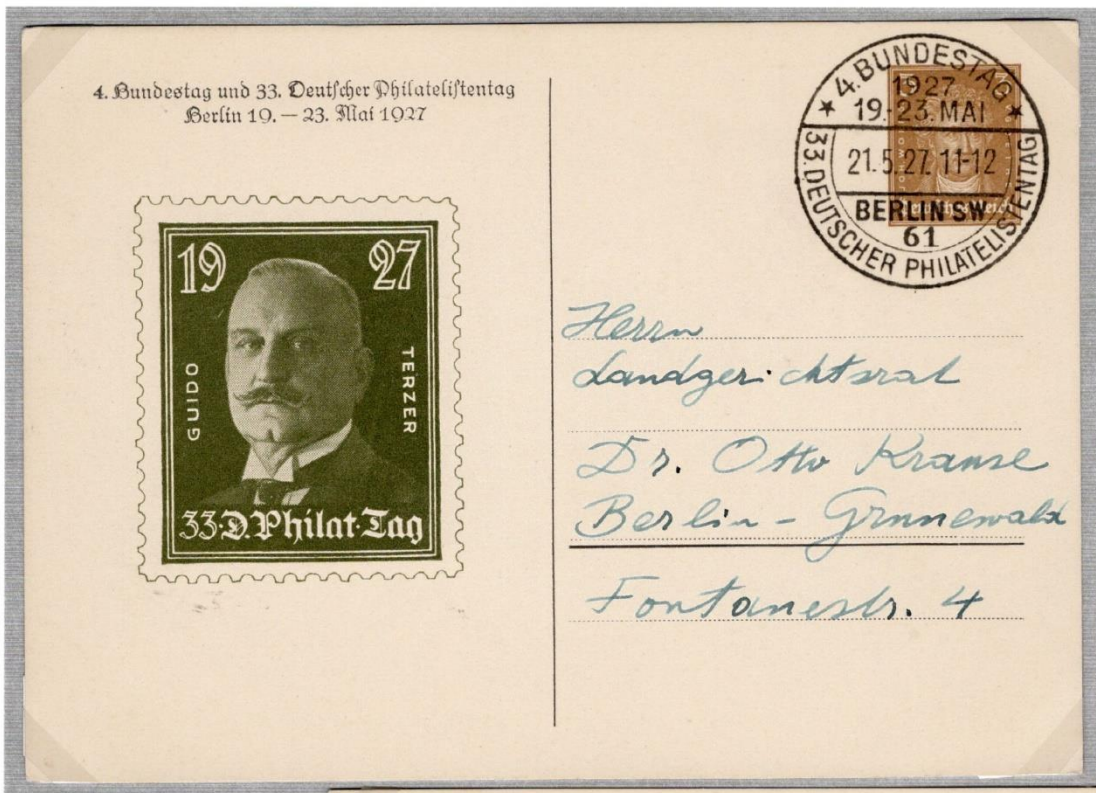 4. Bundestag und 33. Deutscher Philatelistentag
Berlin 19. — 23. Mai 1927
19 27
GUIDO TERZER
33·D.Philat·Tag
★ 4. BUNDESTAG ★
1927
19.-23. MAI
21.5.27. 11-12
BERLIN SW
61
33. DEUTSCHER PHILATELISTENTAG
Herrn
Landgerichtsrat
Dr. Otto Krause
Berlin - Grunewald
Fontanestr. 4